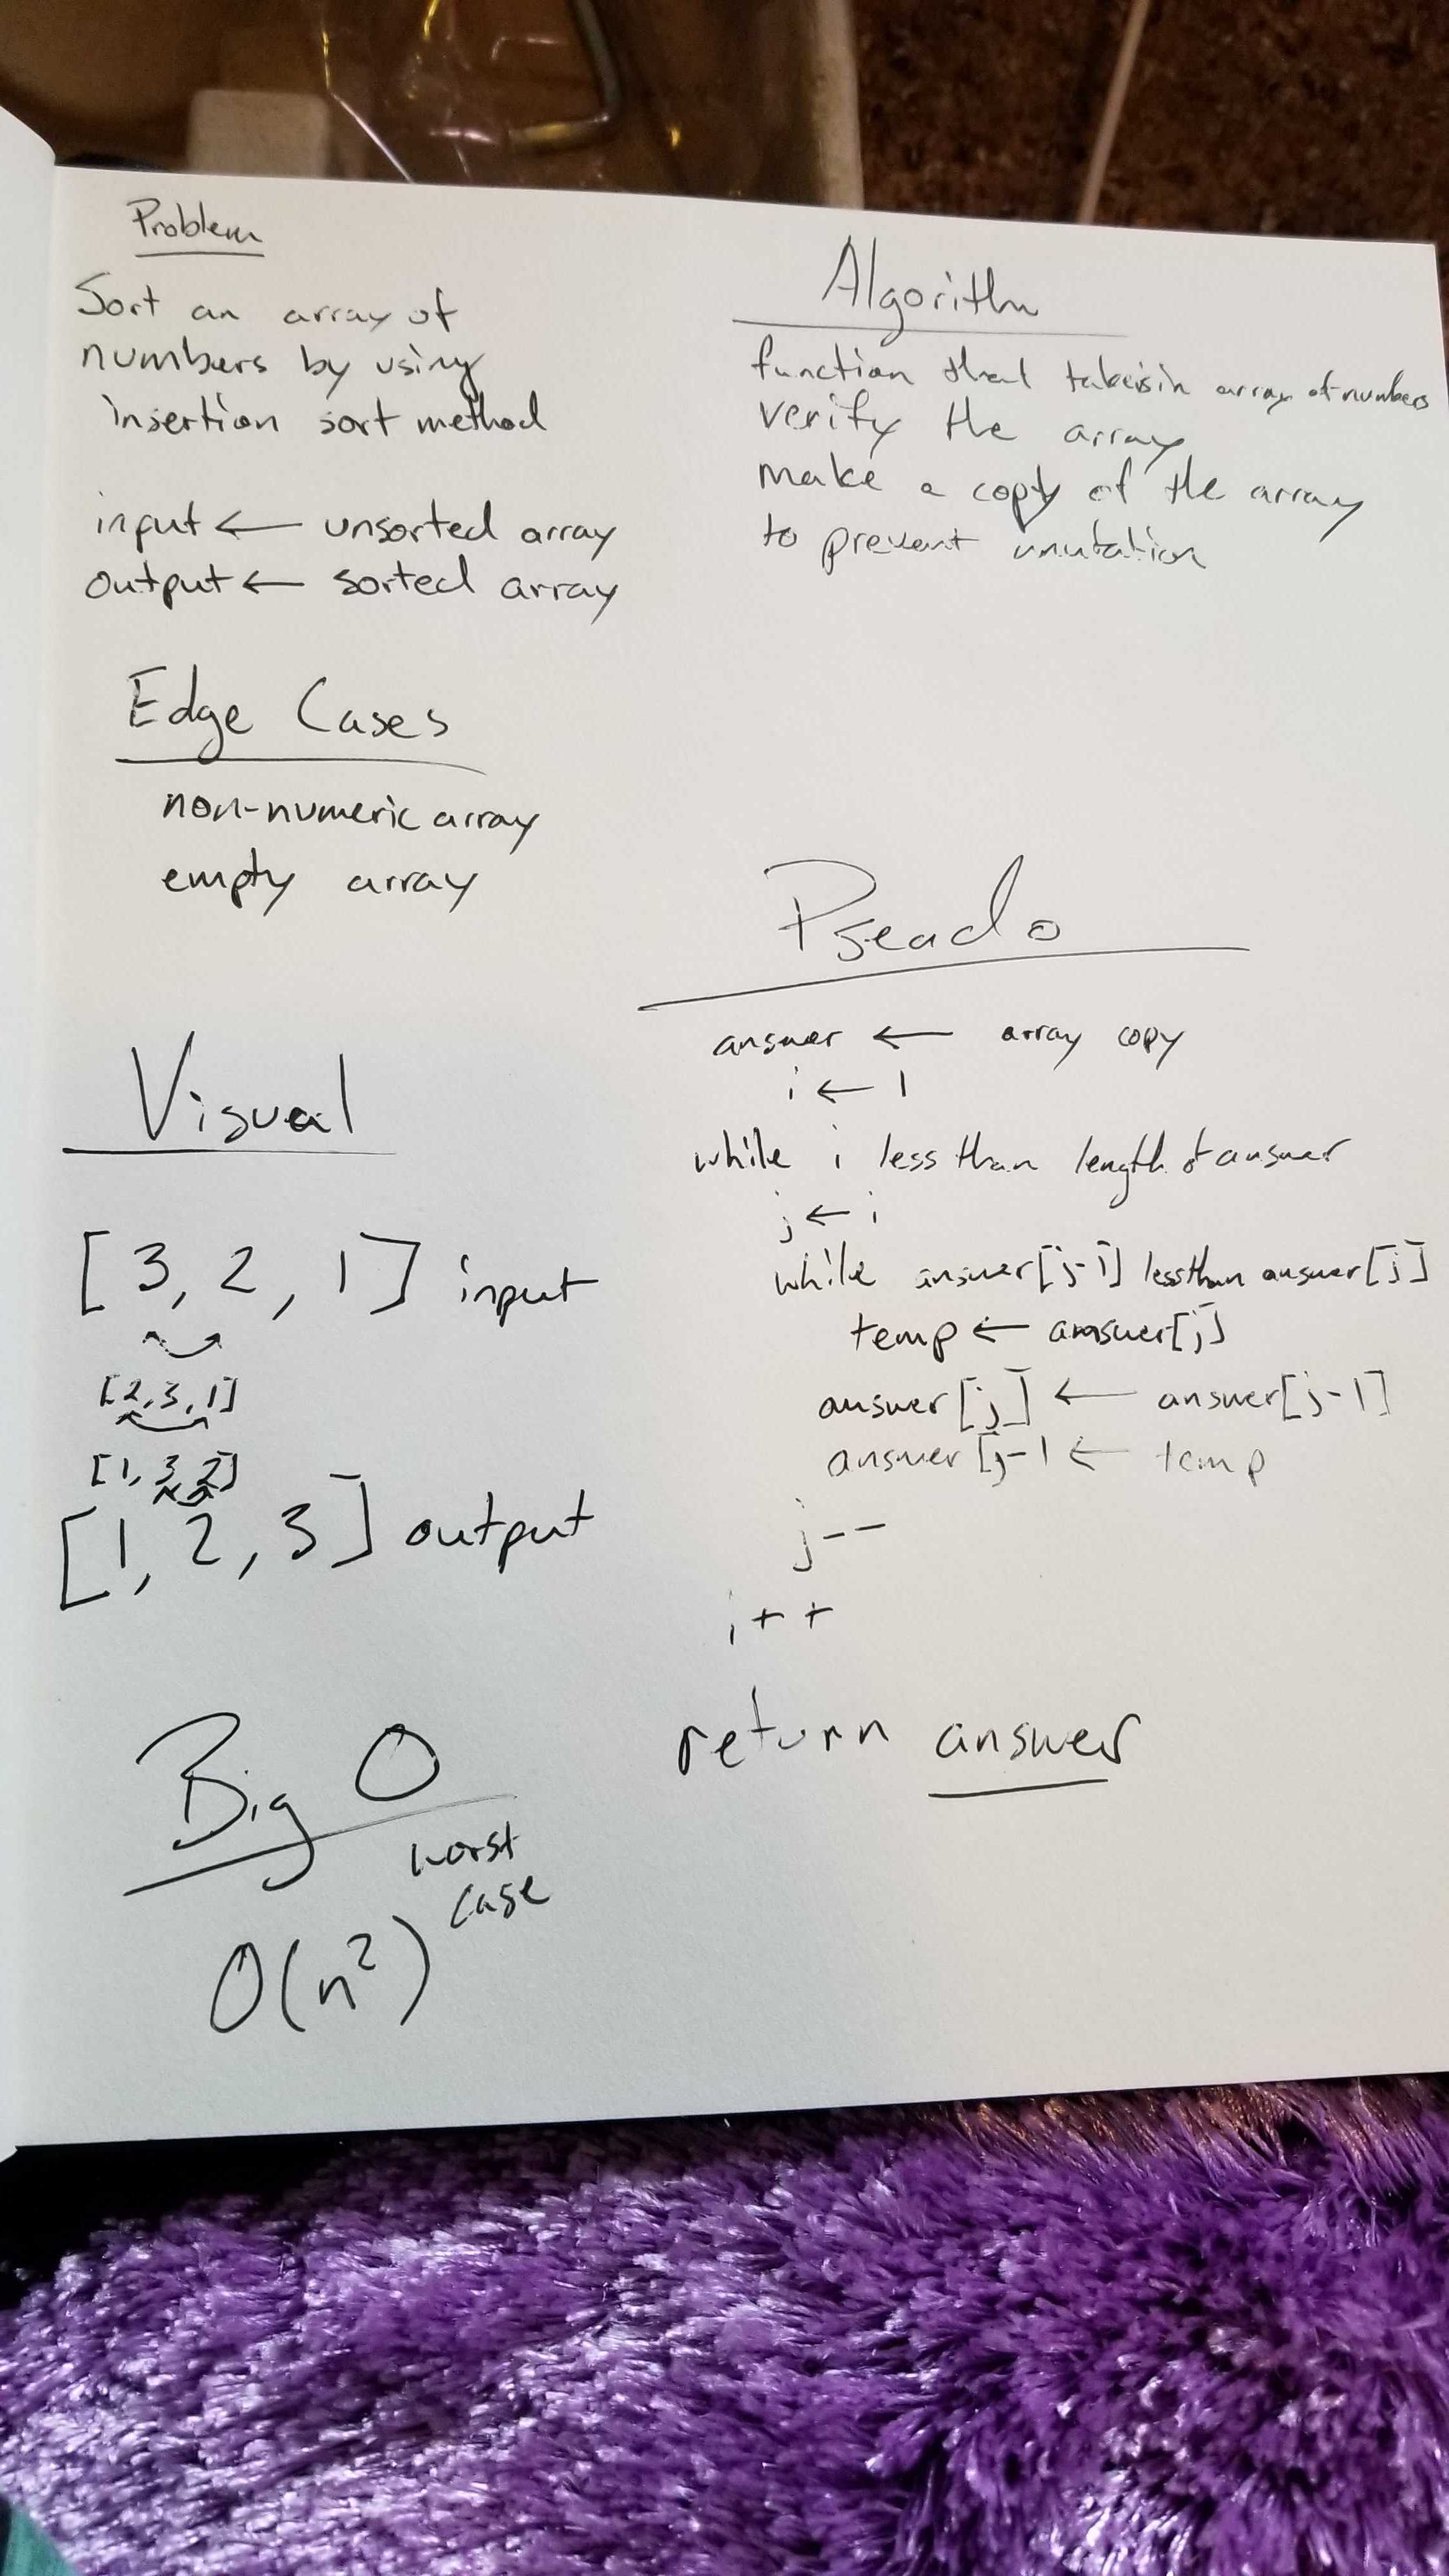 Problem
Sort an array of
numbers by using
insertion sort method
input ← unsorted array
output ← sorted array
Edge Cases
non-numeric array
empty array
Visual
[3, 2, 1] input
[2,3,1]
[1,3,2]
[1, 2, 3] output
Big O
worst
case
O(n²)
Algorithm
function that takes in array of numbers
verify the array
make a copy of the array
to prevent mutation
Pseado
answer ← array copy
i ← 1
while i less than length of answer
j ← i
while answer[j-1] less than answer[j]
temp ← answer[j]
answer[j] ← answer[j-1]
answer[j-1 ← temp
j--
i++
return answer